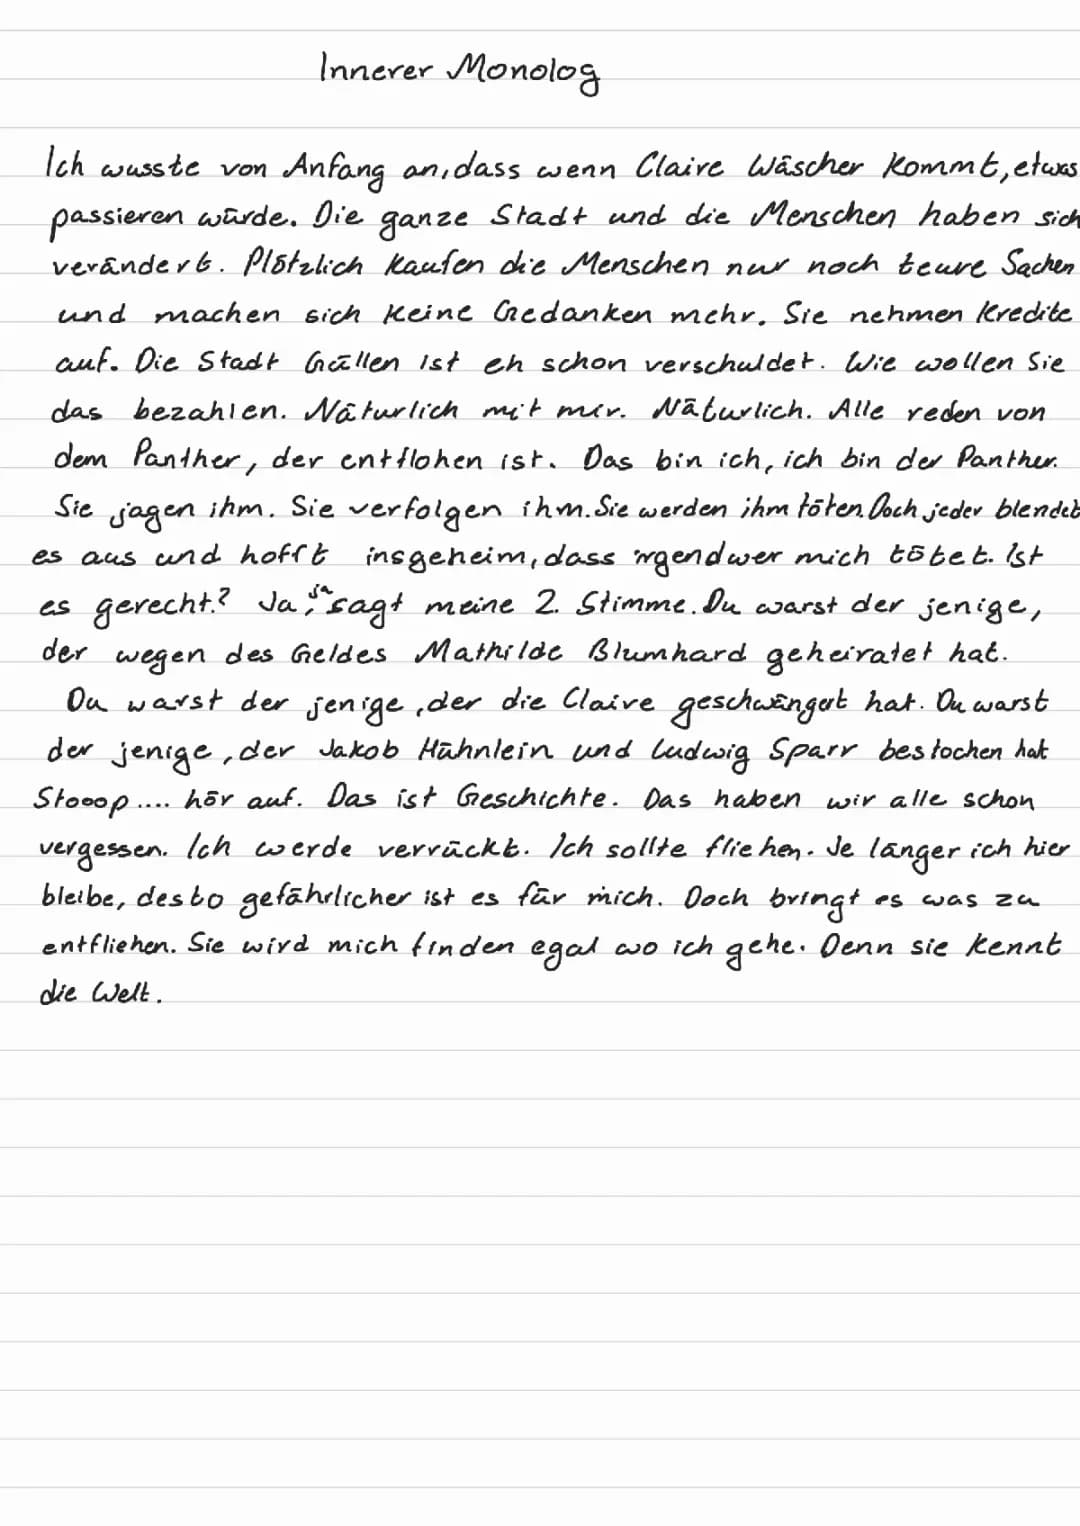 Innerer Monolog
Ich wusste von Anfang an, dass wenn Claire Wäscher kommt, etwas
passieren würde. Die ganze Stadt und die Menschen haben sich
verändert. Plötzlich kaufen die Menschen nur noch teure Sachen
und machen sich keine Gedanken mehr. Sie nehmen Kredite
auf. Die Stadt Güllen ist eh schon verschuldet. Wie wollen Sie
das bezahlen. Natürlich mit mir. Natürlich. Alle reden von
dem Panther, der entflohen ist. Das bin ich, ich bin der Panther.
Sie jagen ihm. Sie verfolgen ihm. Sie werden ihm töten. Doch jeder blendet
es aus und hofft insgeheim, dass irgendwer mich tötet. Ist
es gerecht.? Ja, ja sagt meine 2. Stimme. Du warst der jenige,
der wegen des Geldes Mathilde Blumhard geheiratet hat.
Du warst der jenige, der die Claire geschwängert hat. Du warst
der jenige, der Jakob Hühnlein und Ludwig Sparr bestochen hat
Stooop.... hör auf. Das ist Geschichte. Das haben wir alle schon
vergessen. Ich werde verrückt. Ich sollte fliehen. Je länger ich hier
bleibe, desto gefährlicher ist es für mich. Doch bringt es was zu
entfliehen. Sie wird mich finden egal wo ich gehe. Denn sie kennt
die Welt.